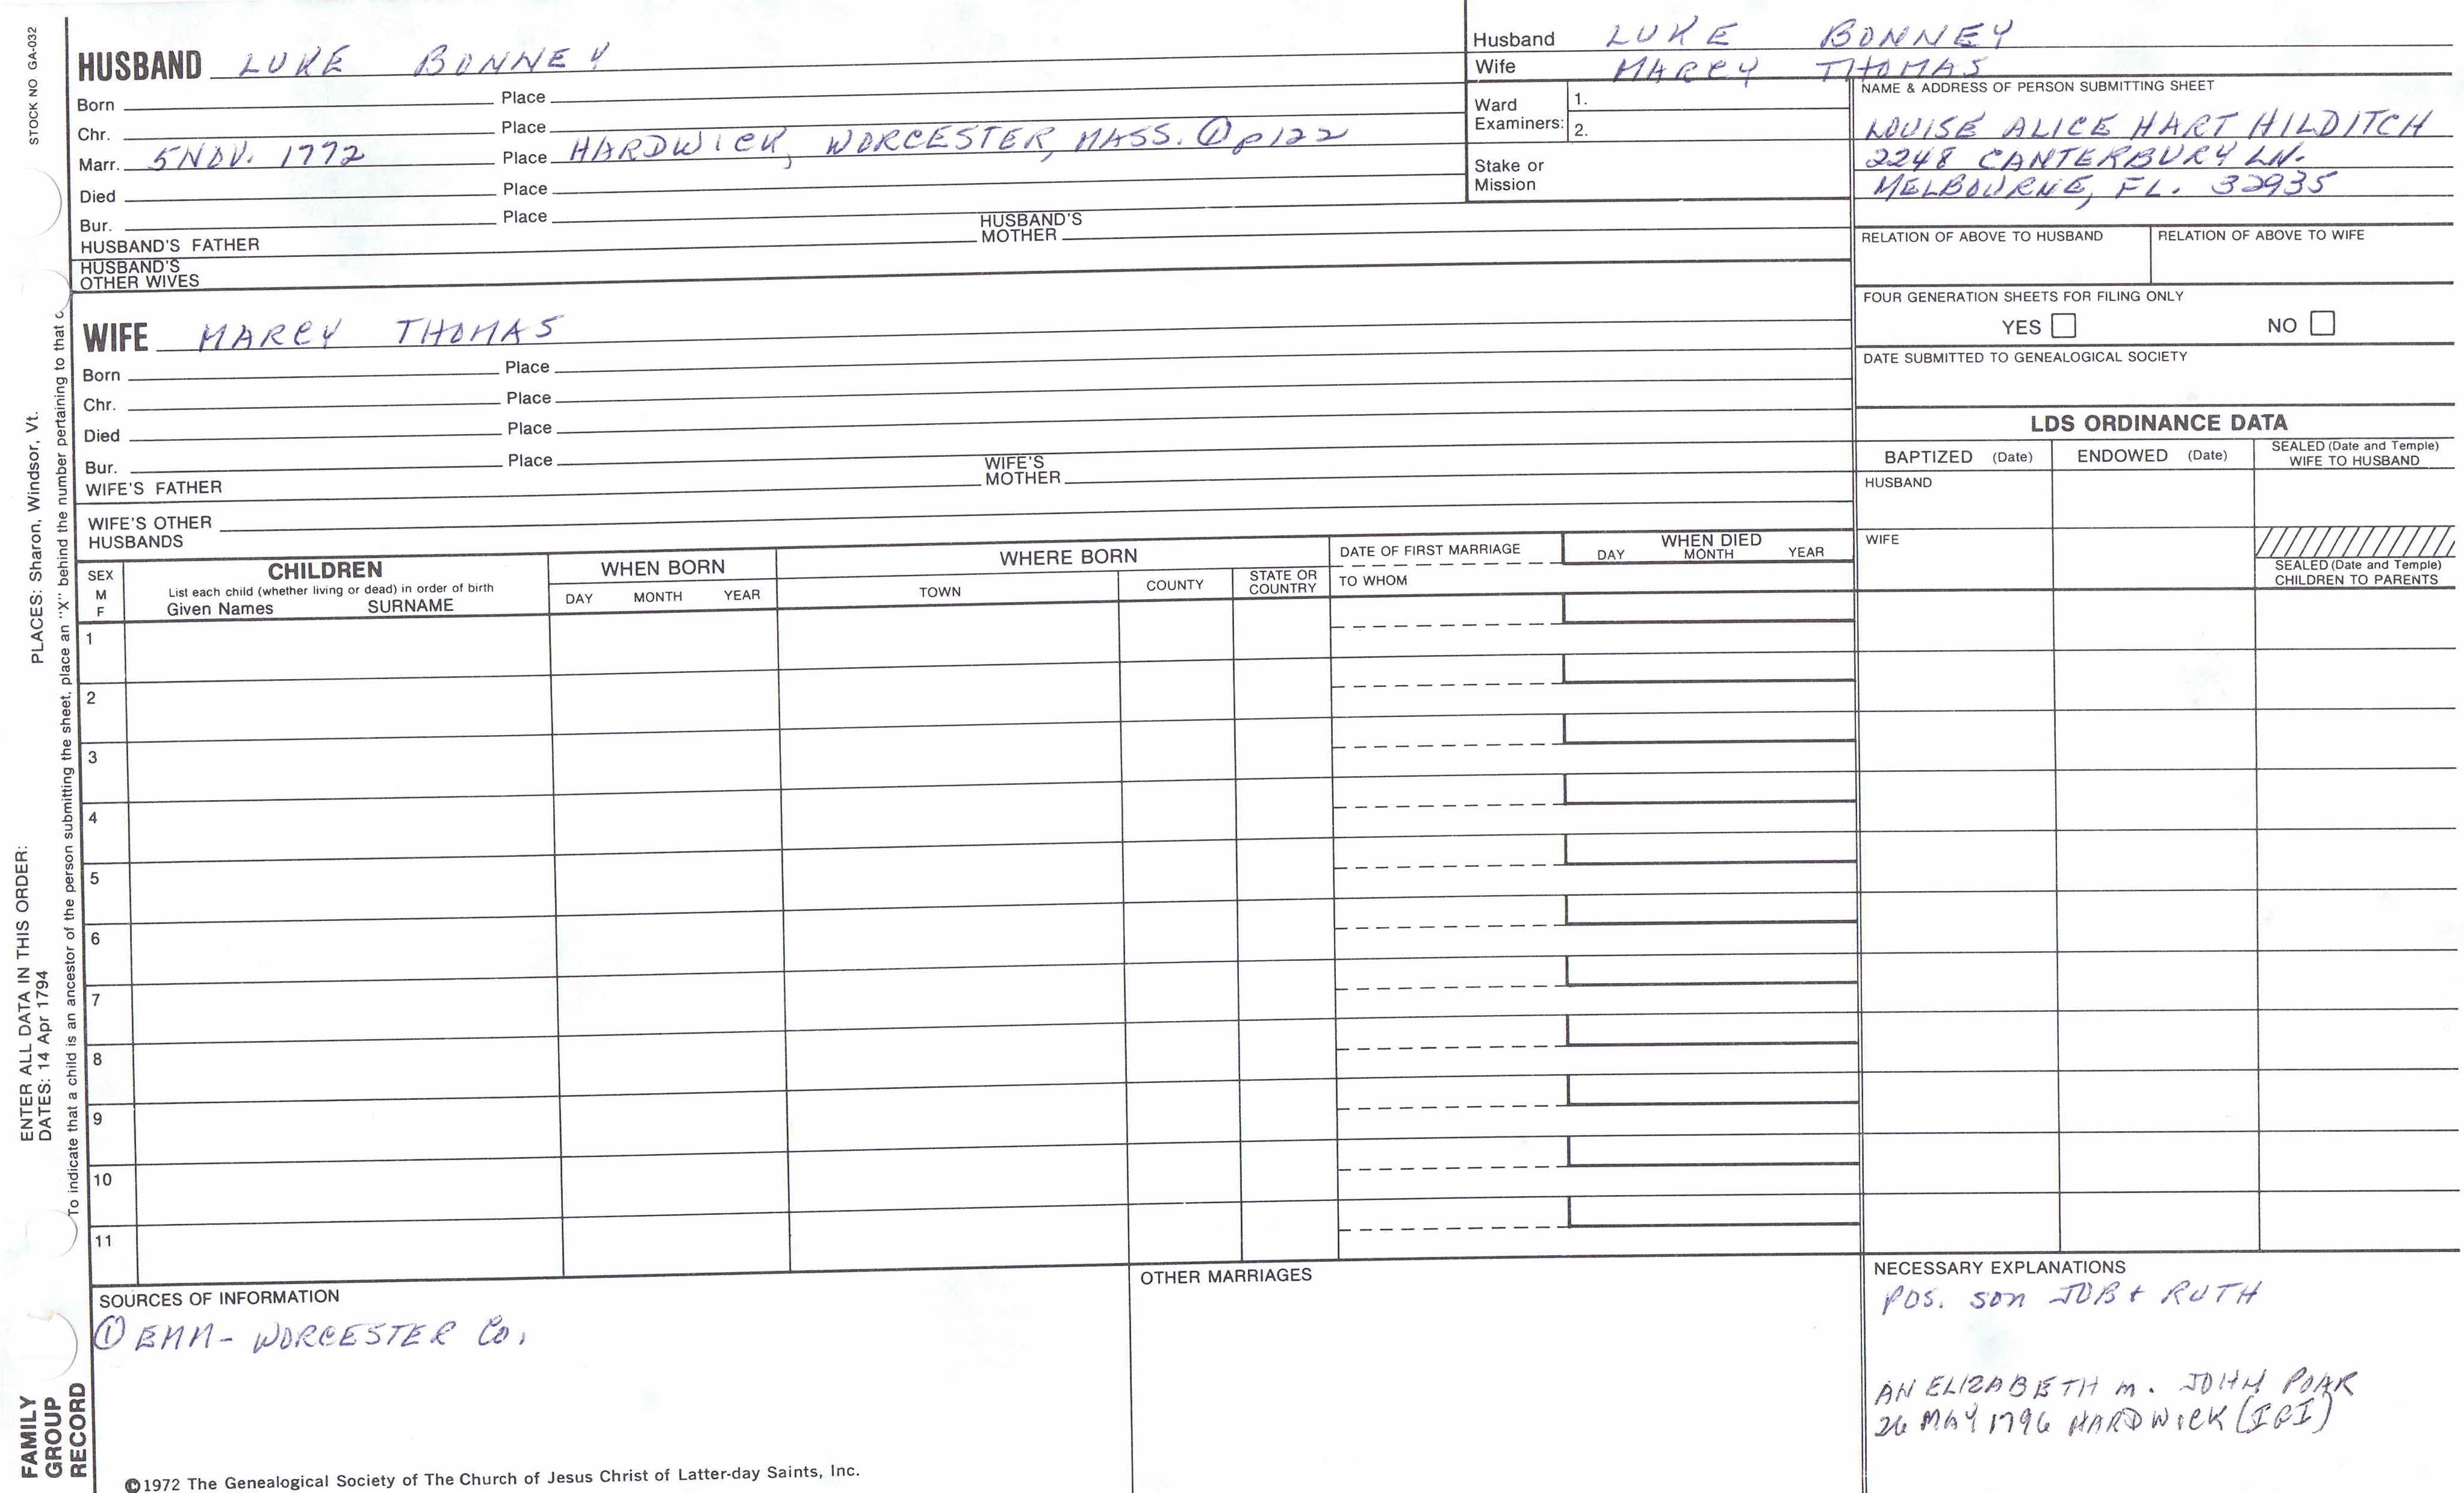 STOCK NO GA-032
PLACES: Sharon, Windsor, Vt.
ENTER ALL DATA IN THIS ORDER:
DATES: 14 Apr 1794
To indicate that a child is an ancestor of the person submitting the sheet, place an "X" behind the number pertaining to that c
FAMILY
GROUP
RECORD
HUSBAND LUKE BONNEY
Born Place
Chr. Place
Marr. 5 NOV. 1772 Place HARDWICK, WORCESTER, MASS. ① p122
Died Place
Bur. Place
HUSBAND'S FATHER HUSBAND'S MOTHER
HUSBAND'S
OTHER WIVES
WIFE MARCY THOMAS
Born Place
Chr. Place
Died Place
Bur. Place
WIFE'S FATHER WIFE'S MOTHER
WIFE'S OTHER
HUSBANDS
Husband LUKE BONNEY
Wife MARCY THOMAS
Ward
Examiners:
1.
2.
Stake or
Mission
NAME & ADDRESS OF PERSON SUBMITTING SHEET
LOUISE ALICE HART HILDITCH
2248 CANTERBURY LN.
MELBOURNE, FL. 32935
RELATION OF ABOVE TO HUSBAND RELATION OF ABOVE TO WIFE
FOUR GENERATION SHEETS FOR FILING ONLY
YES NO
DATE SUBMITTED TO GENEALOGICAL SOCIETY
LDS ORDINANCE DATA
BAPTIZED (Date) ENDOWED (Date) SEALED (Date and Temple)
WIFE TO HUSBAND
HUSBAND
WIFE
SEALED (Date and Temple)
CHILDREN TO PARENTS
SEX
M
F
CHILDREN
List each child (whether living or dead) in order of birth
Given Names SURNAME
WHEN BORN
DAY MONTH YEAR
WHERE BORN
TOWN COUNTY STATE OR
COUNTRY
DATE OF FIRST MARRIAGE
TO WHOM
WHEN DIED
DAY MONTH YEAR
1
2
3
4
5
6
7
8
9
10
11
SOURCES OF INFORMATION
① EMM- WORCESTER Co.
OTHER MARRIAGES
NECESSARY EXPLANATIONS
POS. son JOB + RUTH
AN ELIZABETH m. JOHN POAR
26 MAY 1796 HARDWICK (IGI)
©1972 The Genealogical Society of The Church of Jesus Christ of Latter-day Saints, Inc.